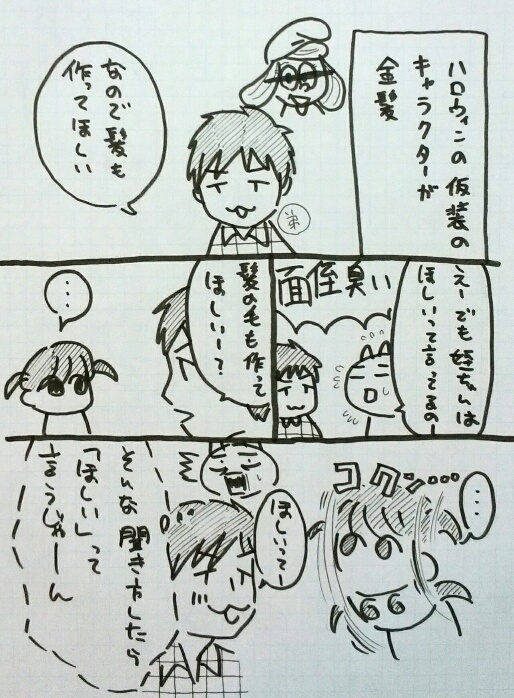 ハロウィンの仮装の
キャラクターが
金髪
弟
なので髪も
作ってほしい
えーでも姪ちゃんは
ほしいって言ってるのー
面倒臭い
髪の毛も作って
ほしいー?
…
…
コクン…
ほしいってー
そんな聞き方したら
「ほしい」って
言うじゃーん